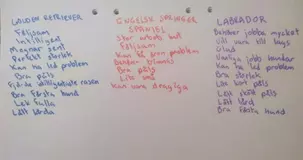 GOLDEN RETRIEVER
Följsam
Intelligent
Magnar sent
Perfekt storlek
Kan ha led problem
Bra päls
Fjärde intelligentaste rasen
Bra första hund
Lek fulla
Lätt lärda
ENGELSK SPRINGER
SPANIEL
Stor arbets lust
Följsam
Kan ha öron problem
Bra päls
Lite små
Kan vara dryga
LABRADOR
Behöver jobba mycket
Vill vara till lags
Glad
Vanliga jobb hundar
Kan ha led problem
Bra storlek
Lite kort päls
Lätt skött päls
Lätt lärd
Bra första hund